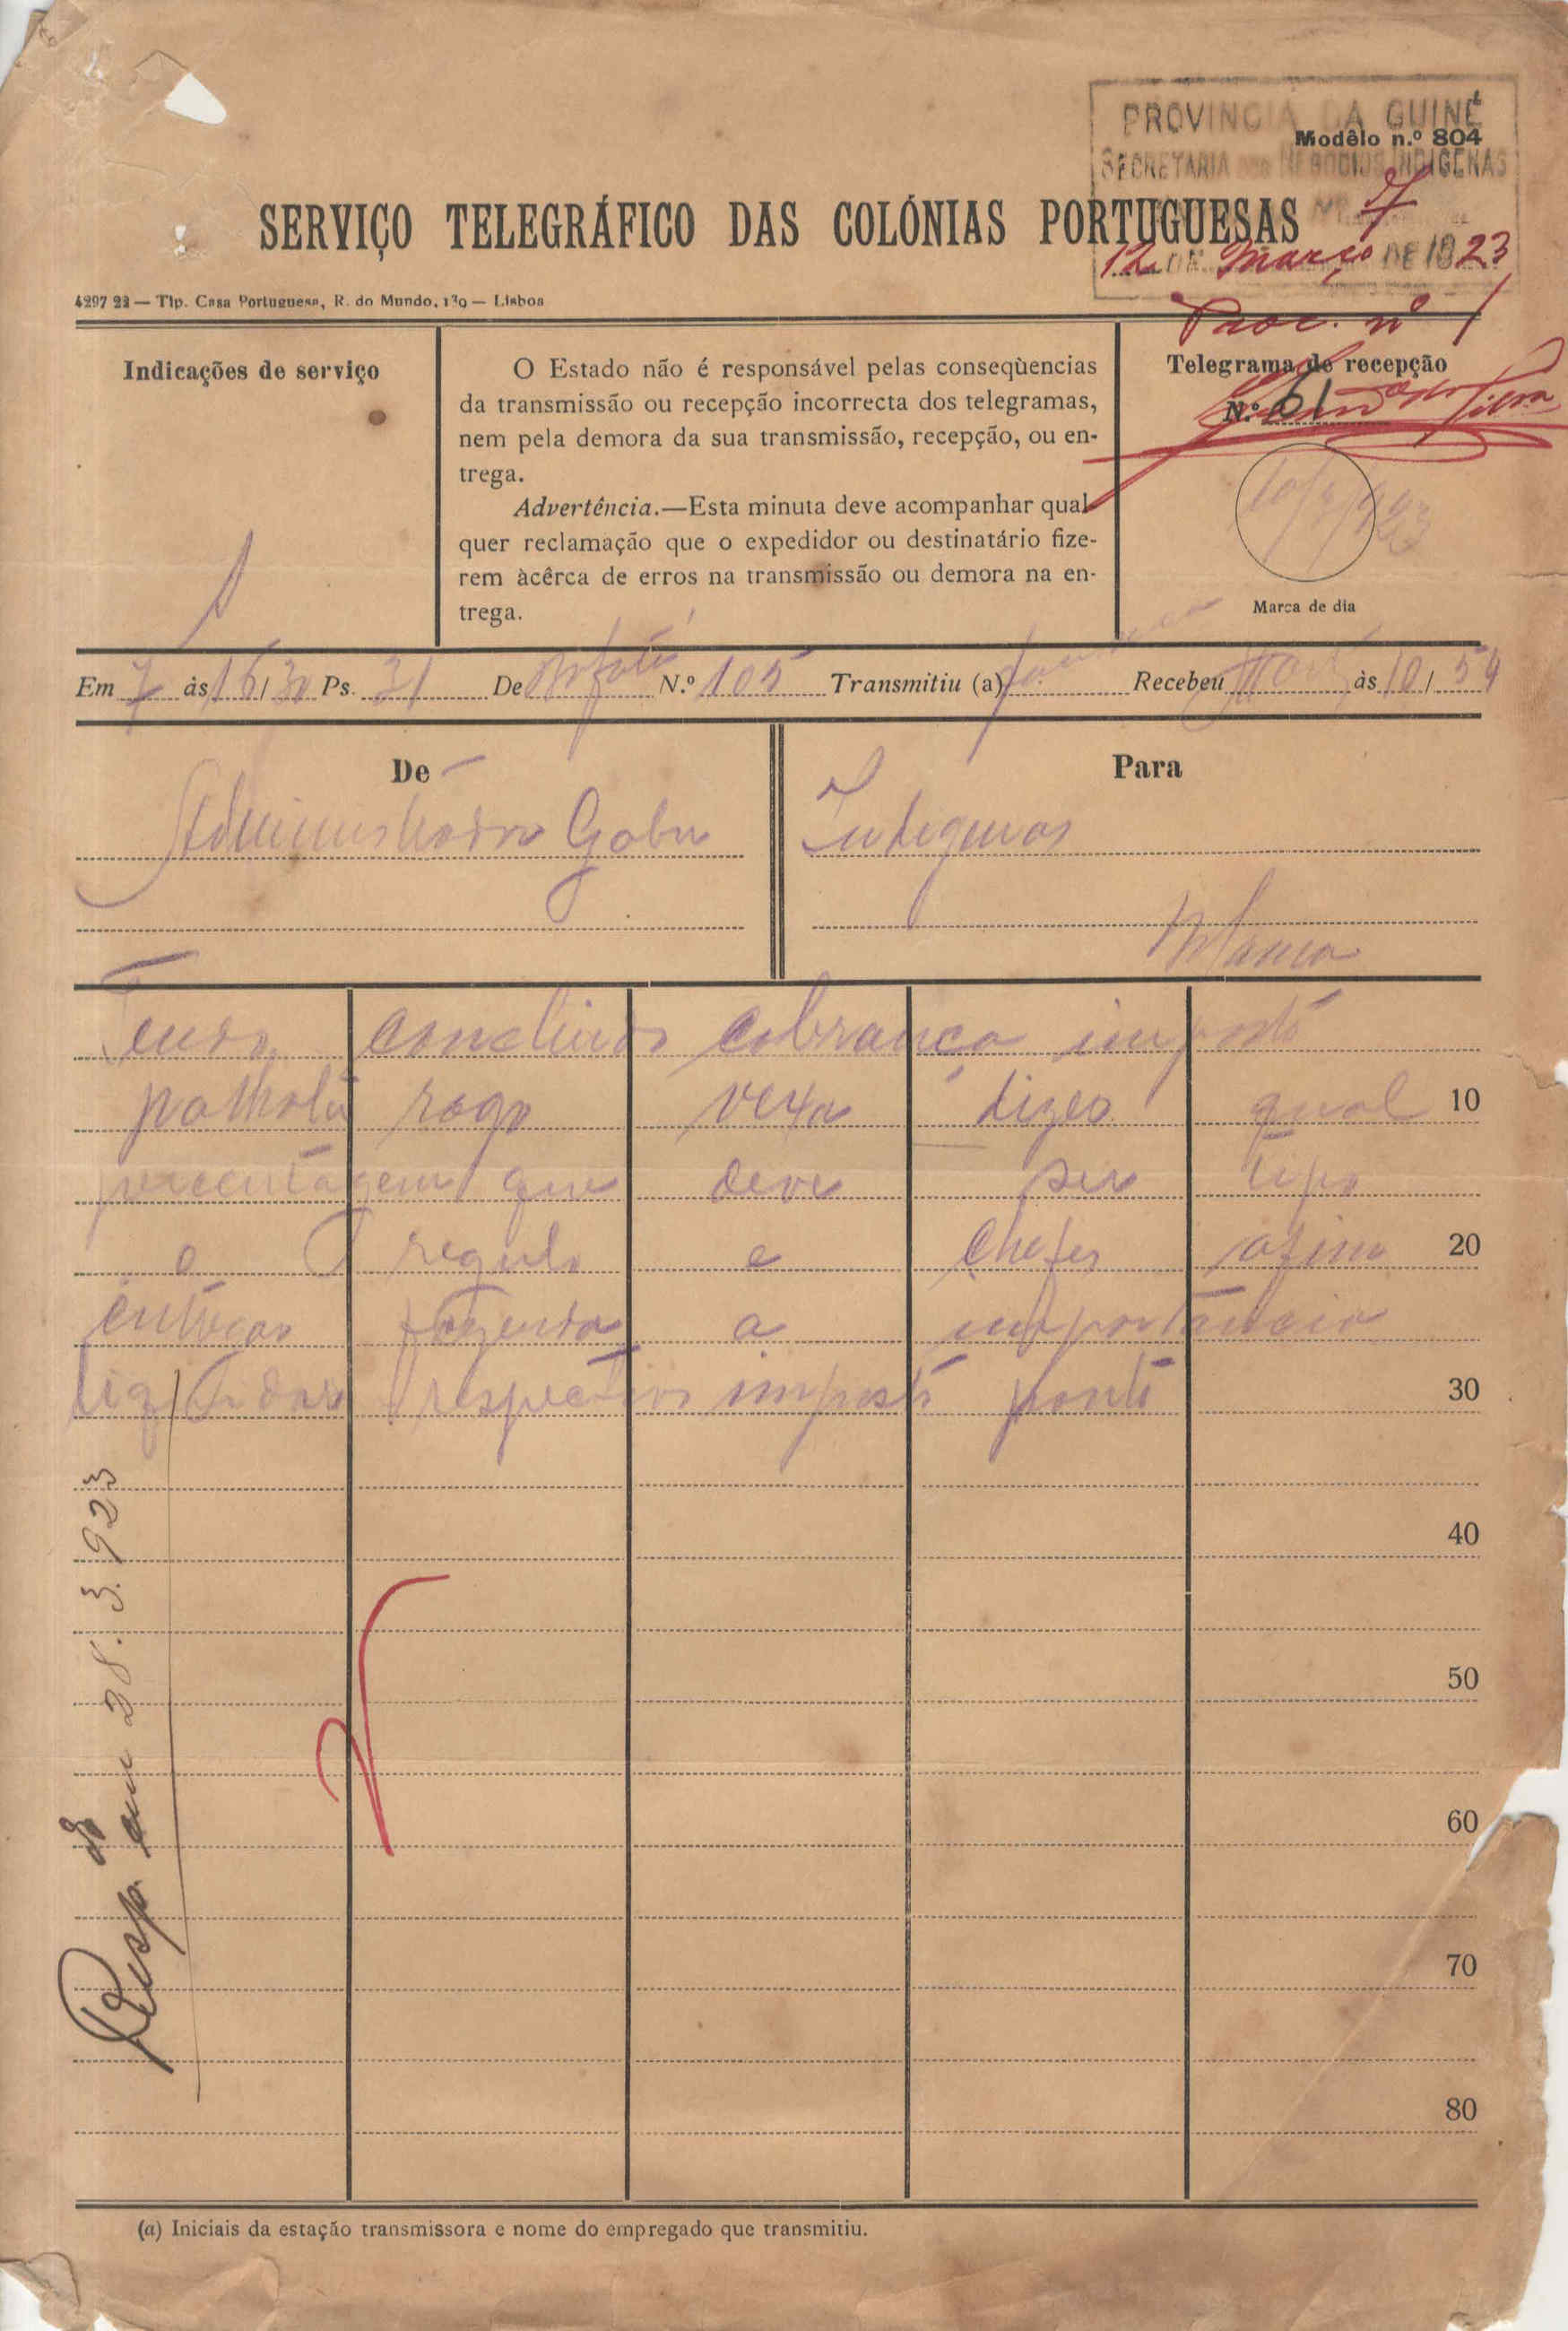 PROVINCIA DA GUINÉ
Modêlo n.º 804
SECRETARIA DOS NEGOCIOS INDIGENAS
SERVIÇO TELEGRÁFICO DAS COLÓNIAS PORTUGUESAS
12 DE Março DE 1923
4297 22 — Tip. Casa Portuguesa, R. do Mundo, 139 — Lisboa
Proc. nº 1
Indicações de serviço
O Estado não é responsável pelas conseqùencias
da transmissão ou recepção incorrecta dos telegramas,
nem pela demora da sua transmissão, recepção, ou en-
trega.
Advertência.—Esta minuta deve acompanhar qual-
quer reclamação que o expedidor ou destinatário fize-
rem àcêrca de erros na transmissão ou demora na en-
trega.
Telegrama de recepção
N.º 61
10/3/923
Marca de dia
Em 7 às 16/30 Ps. 31 De Bafatá N.º 105 Transmitiu (a) Recebeu às 10/54
De
Administrador Gabu
Para
Indigenas
Tendo concluido cobrança imposto
palhota rogo vexa dizer qual 10
precentagem que deve ser
o regulo e chefes afim 20
entregar fazenda a importancia
liquidar respectivo imposto ponto 30
40
50
60
70
80
Resp.do em 28.3.923
(a) Iniciais da estação transmissora e nome do empregado que transmitiu.